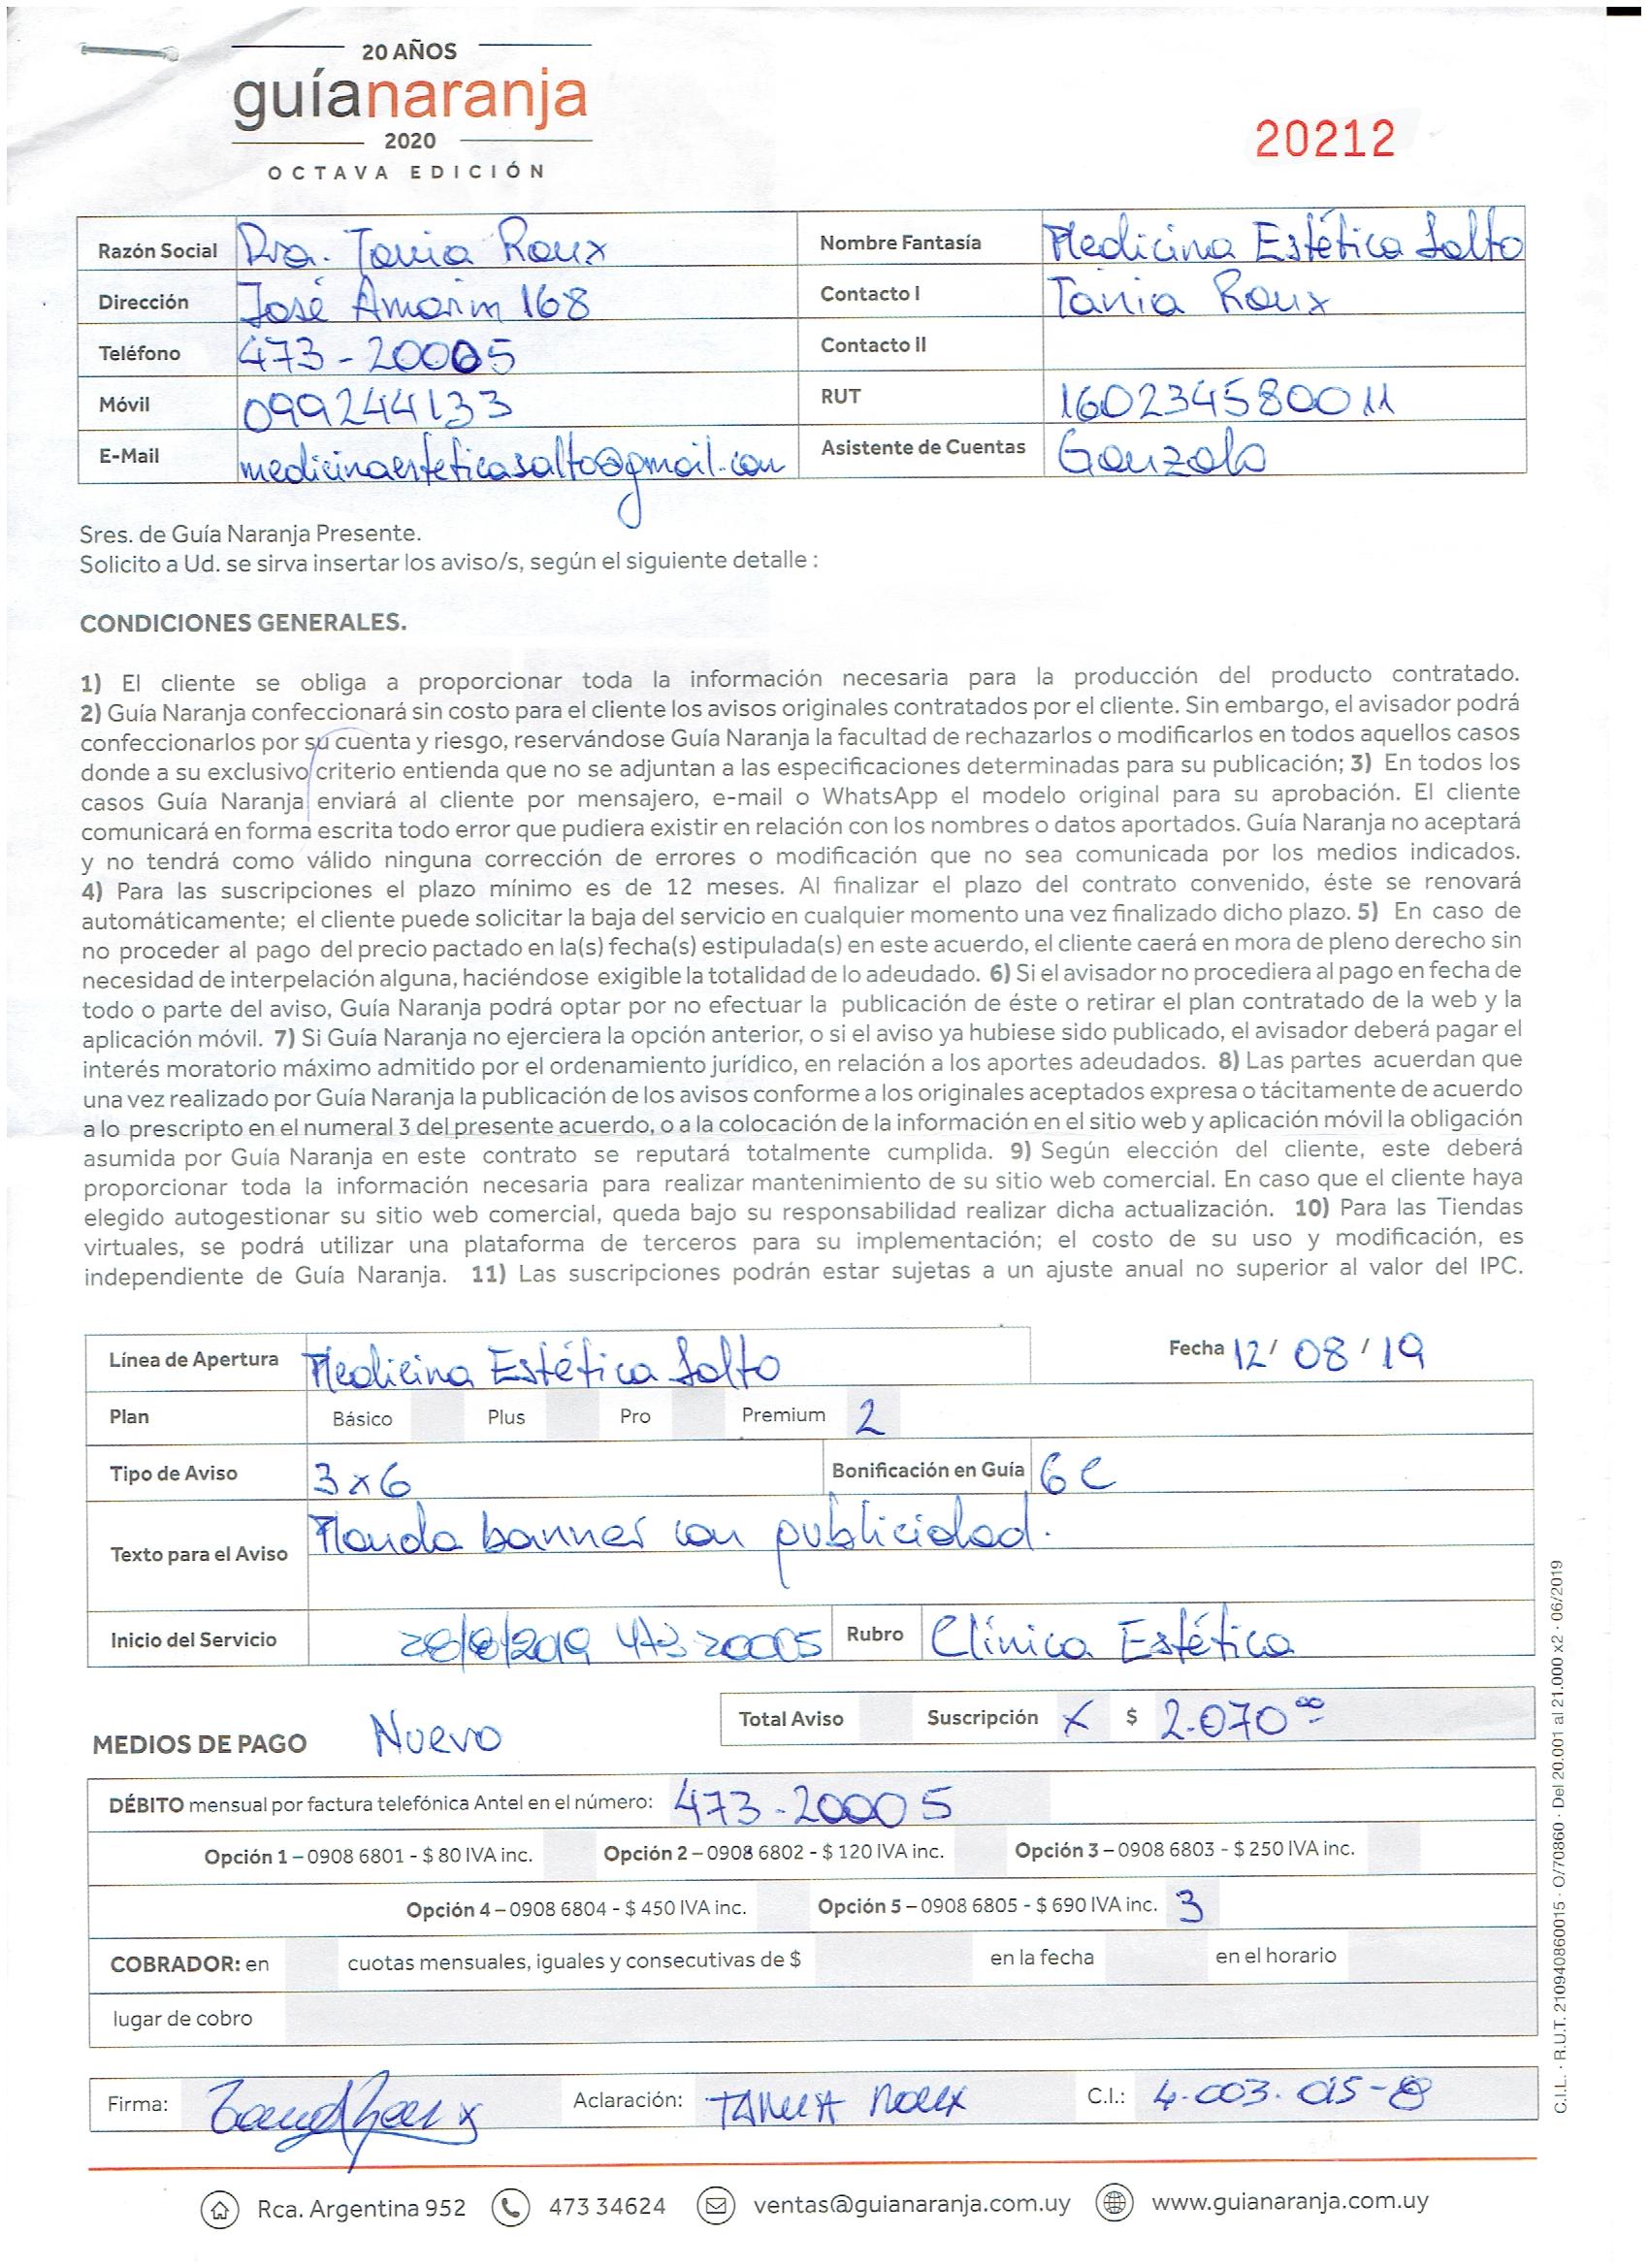 20 AÑOS
guíanaranja
2020
OCTAVA EDICIÓN
20212
Razón Social Dra. Tania Roux Nombre Fantasía Medicina Estética Salto
Dirección José Amorim 168 Contacto I Tania Roux
Teléfono 473-20005 Contacto II
Móvil 099244133 RUT 160234580011
E-Mail medicinaesteticasalto@gmail.com Asistente de Cuentas Gonzalo
Sres. de Guía Naranja Presente.
Solicito a Ud. se sirva insertar los aviso/s, según el siguiente detalle :
CONDICIONES GENERALES.
1) El cliente se obliga a proporcionar toda la información necesaria para la producción del producto contratado.
2) Guía Naranja confeccionará sin costo para el cliente los avisos originales contratados por el cliente. Sin embargo, el avisador podrá
confeccionarlos por su cuenta y riesgo, reservándose Guía Naranja la facultad de rechazarlos o modificarlos en todos aquellos casos
donde a su exclusivo criterio entienda que no se adjuntan a las especificaciones determinadas para su publicación; 3) En todos los
casos Guía Naranja enviará al cliente por mensajero, e-mail o WhatsApp el modelo original para su aprobación. El cliente
comunicará en forma escrita todo error que pudiera existir en relación con los nombres o datos aportados. Guía Naranja no aceptará
y no tendrá como válido ninguna corrección de errores o modificación que no sea comunicada por los medios indicados.
4) Para las suscripciones el plazo mínimo es de 12 meses. Al finalizar el plazo del contrato convenido, éste se renovará
automáticamente; el cliente puede solicitar la baja del servicio en cualquier momento una vez finalizado dicho plazo. 5) En caso de
no proceder al pago del precio pactado en la(s) fecha(s) estipulada(s) en este acuerdo, el cliente caerá en mora de pleno derecho sin
necesidad de interpelación alguna, haciéndose exigible la totalidad de lo adeudado. 6) Si el avisador no procediera al pago en fecha de
todo o parte del aviso, Guía Naranja podrá optar por no efectuar la publicación de éste o retirar el plan contratado de la web y la
aplicación móvil. 7) Si Guía Naranja no ejerciera la opción anterior, o si el aviso ya hubiese sido publicado, el avisador deberá pagar el
interés moratorio máximo admitido por el ordenamiento jurídico, en relación a los aportes adeudados. 8) Las partes acuerdan que
una vez realizado por Guía Naranja la publicación de los avisos conforme a los originales aceptados expresa o tácitamente de acuerdo
a lo prescripto en el numeral 3 del presente acuerdo, o a la colocación de la información en el sitio web y aplicación móvil la obligación
asumida por Guía Naranja en este contrato se reputará totalmente cumplida. 9) Según elección del cliente, este deberá
proporcionar toda la información necesaria para realizar mantenimiento de su sitio web comercial. En caso que el cliente haya
elegido autogestionar su sitio web comercial, queda bajo su responsabilidad realizar dicha actualización. 10) Para las Tiendas
virtuales, se podrá utilizar una plataforma de terceros para su implementación; el costo de su uso y modificación, es
independiente de Guía Naranja. 11) Las suscripciones podrán estar sujetas a un ajuste anual no superior al valor del IPC.
Línea de Apertura Medicina Estética Salto Fecha 12/ 08 / 19
Plan Básico Plus Pro Premium 2
Tipo de Aviso 3x6 Bonificación en Guía 6C
Texto para el Aviso Manda banner con publicidad.
Inicio del Servicio 28/8/2019 473 20005 Rubro Clínica Estética
Total Aviso Suscripción X $ 2.070 00
MEDIOS DE PAGO Nuevo
DÉBITO mensual por factura telefónica Antel en el número: 473-20005
Opción 1 – 0908 6801 - $ 80 IVA inc. Opción 2 – 0908 6802 - $ 120 IVA inc. Opción 3 – 0908 6803 - $ 250 IVA inc.
Opción 4 – 0908 6804 - $ 450 IVA inc. Opción 5 – 0908 6805 - $ 690 IVA inc. 3
COBRADOR: en cuotas mensuales, iguales y consecutivas de $ en la fecha en el horario
lugar de cobro
Firma: Aclaración: TANIA ROUX C.I.: 4.003.015-8
Rca. Argentina 952 473 34624 ventas@guianaranja.com.uy www.guianaranja.com.uy
C.I.L. · R.U.T. 210940860015 · O/70860 · Del 20.001 al 21.000 x2 · 06/2019